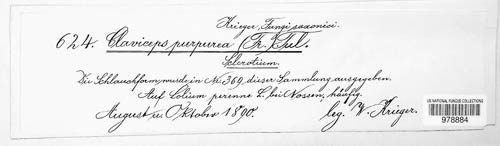 Krieger, Fungi saxonici.
624. Claviceps purpurea (Fr.) Tul.
Sclerotium.
Die Schlauchform wurde in Nr. 369 dieser Sammlung ausgegeben.
Auf Lolium perenne L. bei Nossen, häufig.
August u. Oktober 1890.
leg. W. Krieger.
US NATIONAL FUNGUS COLLECTIONS
978884